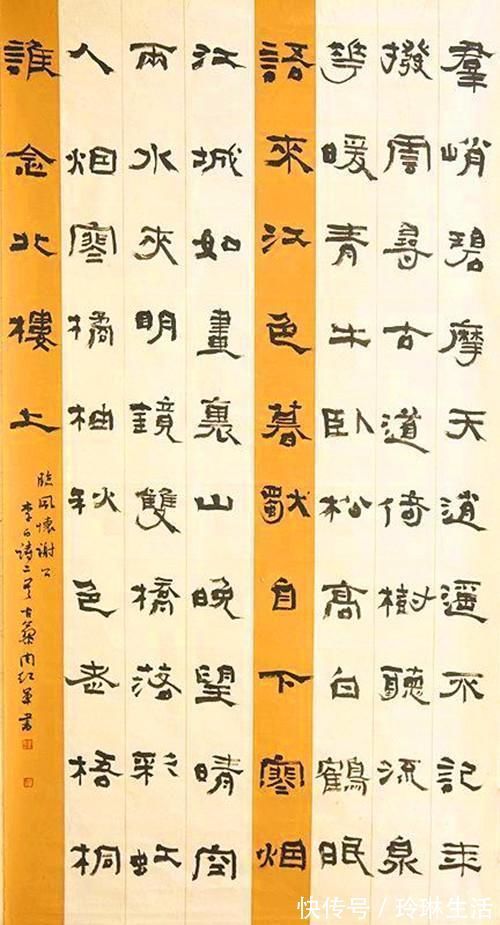 羣峭碧摩天逍遥不記年
撥雲尋古道倚樹聽流泉
華暖青牛卧松高白鶴眠
語來江色暮獨自下寒烟
江城如畫裏山晚望晴空
兩水夾明鏡雙橋落彩虹
人烟寒橘柚秋色老梧桐
誰念北樓上
臨風懷謝公
李白詩二首古紅軍書
快传号/玲琳生活